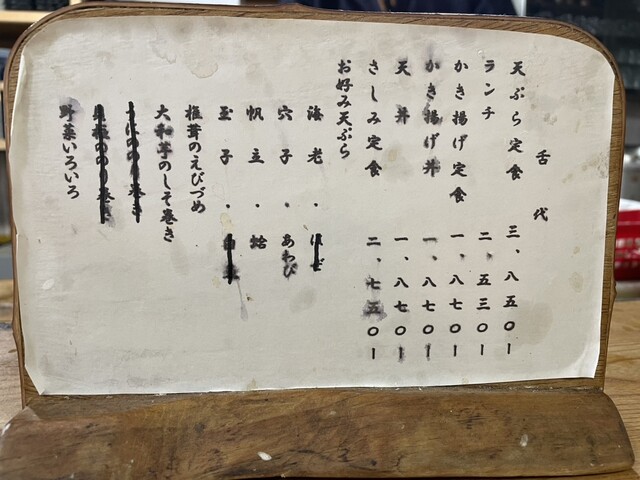 舌代
天ぷら定食 三、八五〇ー
ランチ 二、五三〇ー
かき揚げ定食 一、八七〇ー
かき揚げ丼 一、八七〇ー
天丼 一、八七〇ー
さしみ定食 二、七五〇ー
お好み天ぷら
海老・
穴子・あわび
帆立・蛤
玉子・
椎茸のえびづめ
大和芋のしそ巻き
野菜いろいろ